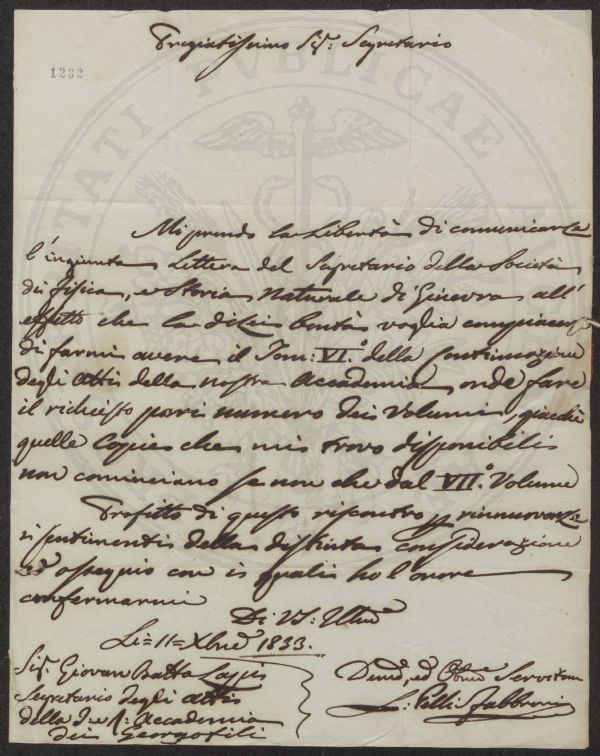 Pregiatissimo Sig: Segretario
1232
Mi prendo la Libertà di comunicarLe
l'ingiunta Lettera del Segretario della Società
di fisica, e Storia Naturale di Ginevra all'
effetto che la di Lei bontà voglia compiacersi
di farmi avere il Tom: VI.° della Continuazione
degli Atti della nostra Accademia, onde fare
il richiesto pari numero dei Volumi, giacchè
quelle Copie che mi trovo disponibili
non cominciano se non che dal VII.° Volume
Profitto di questo riscontro p rinnuovarLe
i sentimenti della distinta considerazione
ed ossequio con i quali ho l'onore
confermarmi
Di VS: Illma
Li = 11 = Xbre 1833.
Sig. Giovan Batta Lapi
Segretario degli Atti
della I. e R. Accademia
dei Georgofili
Devmo, ed Obbmo Servitore
L: Pelli Fabbroni
TATI PVBLICAE